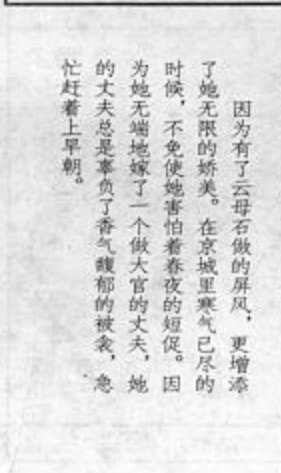 因为有了云母石做的屏风，更增添
了她无限的娇美。在京城里寒气已尽的
时候，不免使她害怕着春夜的短促。因
为她无端地嫁了一个做大官的丈夫，她
的丈夫总是辜负了香气馥郁的被衾，急
忙赶着上早朝。